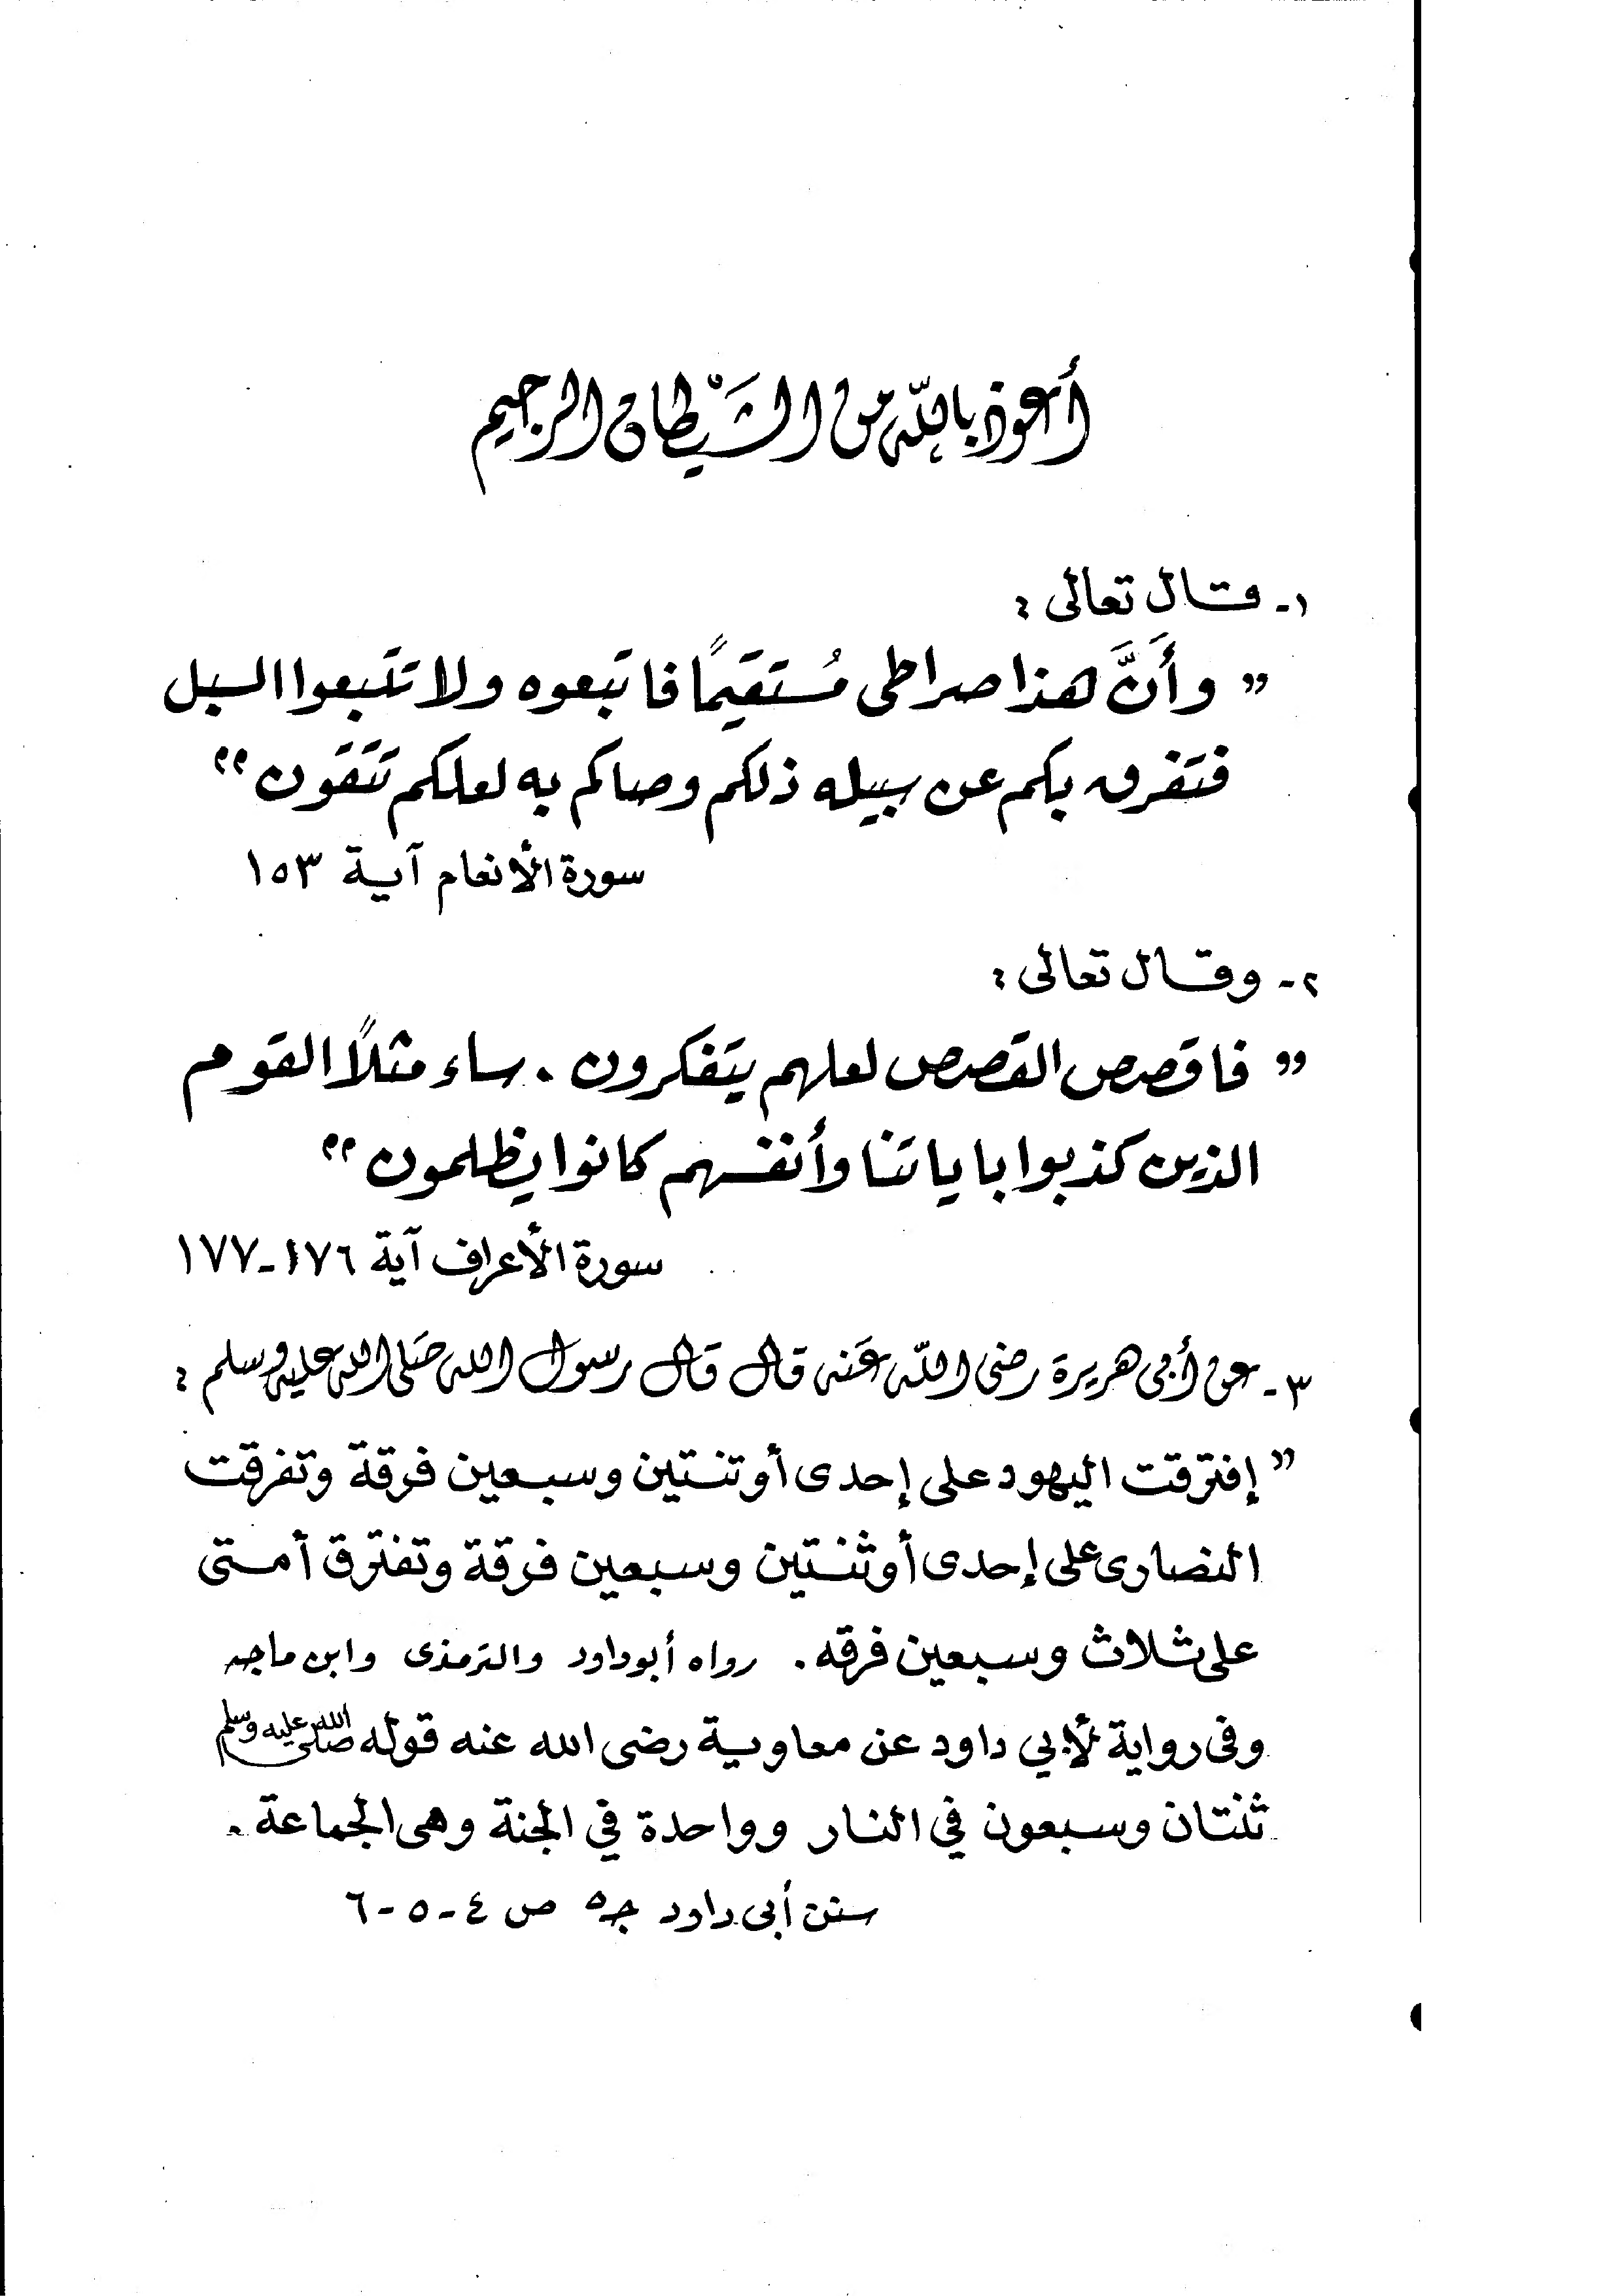 أعوذ بالله من الشَيْطان الرجيم
١- قال تعالى :
” وأَنَّ هذا صراطى مُستقيمًا فاتبعوه ولا تتبعوا السبل
فتفرق بكم عن سبيله ذلكم وصاكم به لعلكم تتقون “
سورة الأنعام آية ١٥٣
٢- وقال تعالى :
” فاقصص القصص لعلهم يتفكرون . ساء مثلاً القوم
الذين كذبوا باياتنا وأنفسهم كانوا يظلمون “
سورة الأعراف آية ١٧٦-١٧٧
٣- عن أبى هريرة رضى اللّه عَنه قال قال رسول الله صَلى الله عليه وسلم :
” إفترقت اليهود على إحدى أو تنتين وسبعين فرقة وتفرقت
النصارى على إحدى أو ثنتين وسبعين فرقة وتفترق أمتى
على ثلاث وسبعين فرقه . رواه أبو داود والترمذى وابن ماجه
وفى رواية لأبي داود عن معاوية رضى الله عنه قوله صلى الله عليه وسلم
ثنتان وسبعون في النار وواحدة في الجنة وهى الجماعة .
سنن أبى داود جـ٥ ص ٤-٥-٦